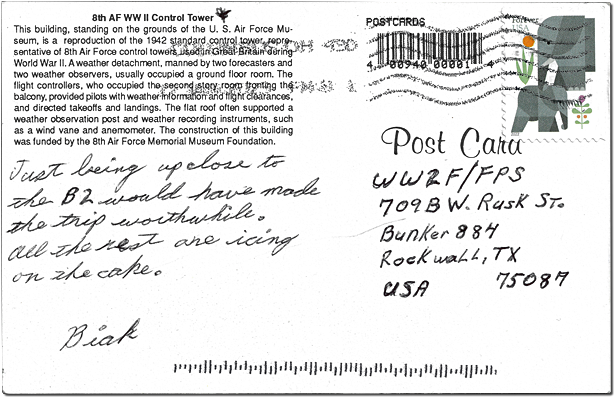 8th AF WW II Control Tower
This building, standing on the grounds of the U. S. Air Force Mu-
seum, is a reproduction of the 1942 standard control tower, repre-
sentative of 8th Air Force control towers used in Great Britain during
World War II. A weather detachment, manned by two forecasters and
two weather observers, usually occupied a ground floor room. The
flight controllers, who occupied the second story room fronting the
balcony, provided pilots with weather information and flight clearances,
and directed takeoffs and landings. The flat roof often supported a
weather observation post and weather recording instruments, such
as a wind vane and anemometer. The construction of this building
was funded by the 8th Air Force Memorial Museum Foundation.
Just being up close to
the B2 would have made
the trip worthwhile.
All the rest are icing
on the cake.
Biak
POSTCARDS
4 00940 00001 4
USA
Post Card
WW2F/FPS
709B W. Rusk St.
Bunker 884
Rockwall, TX
USA 75087